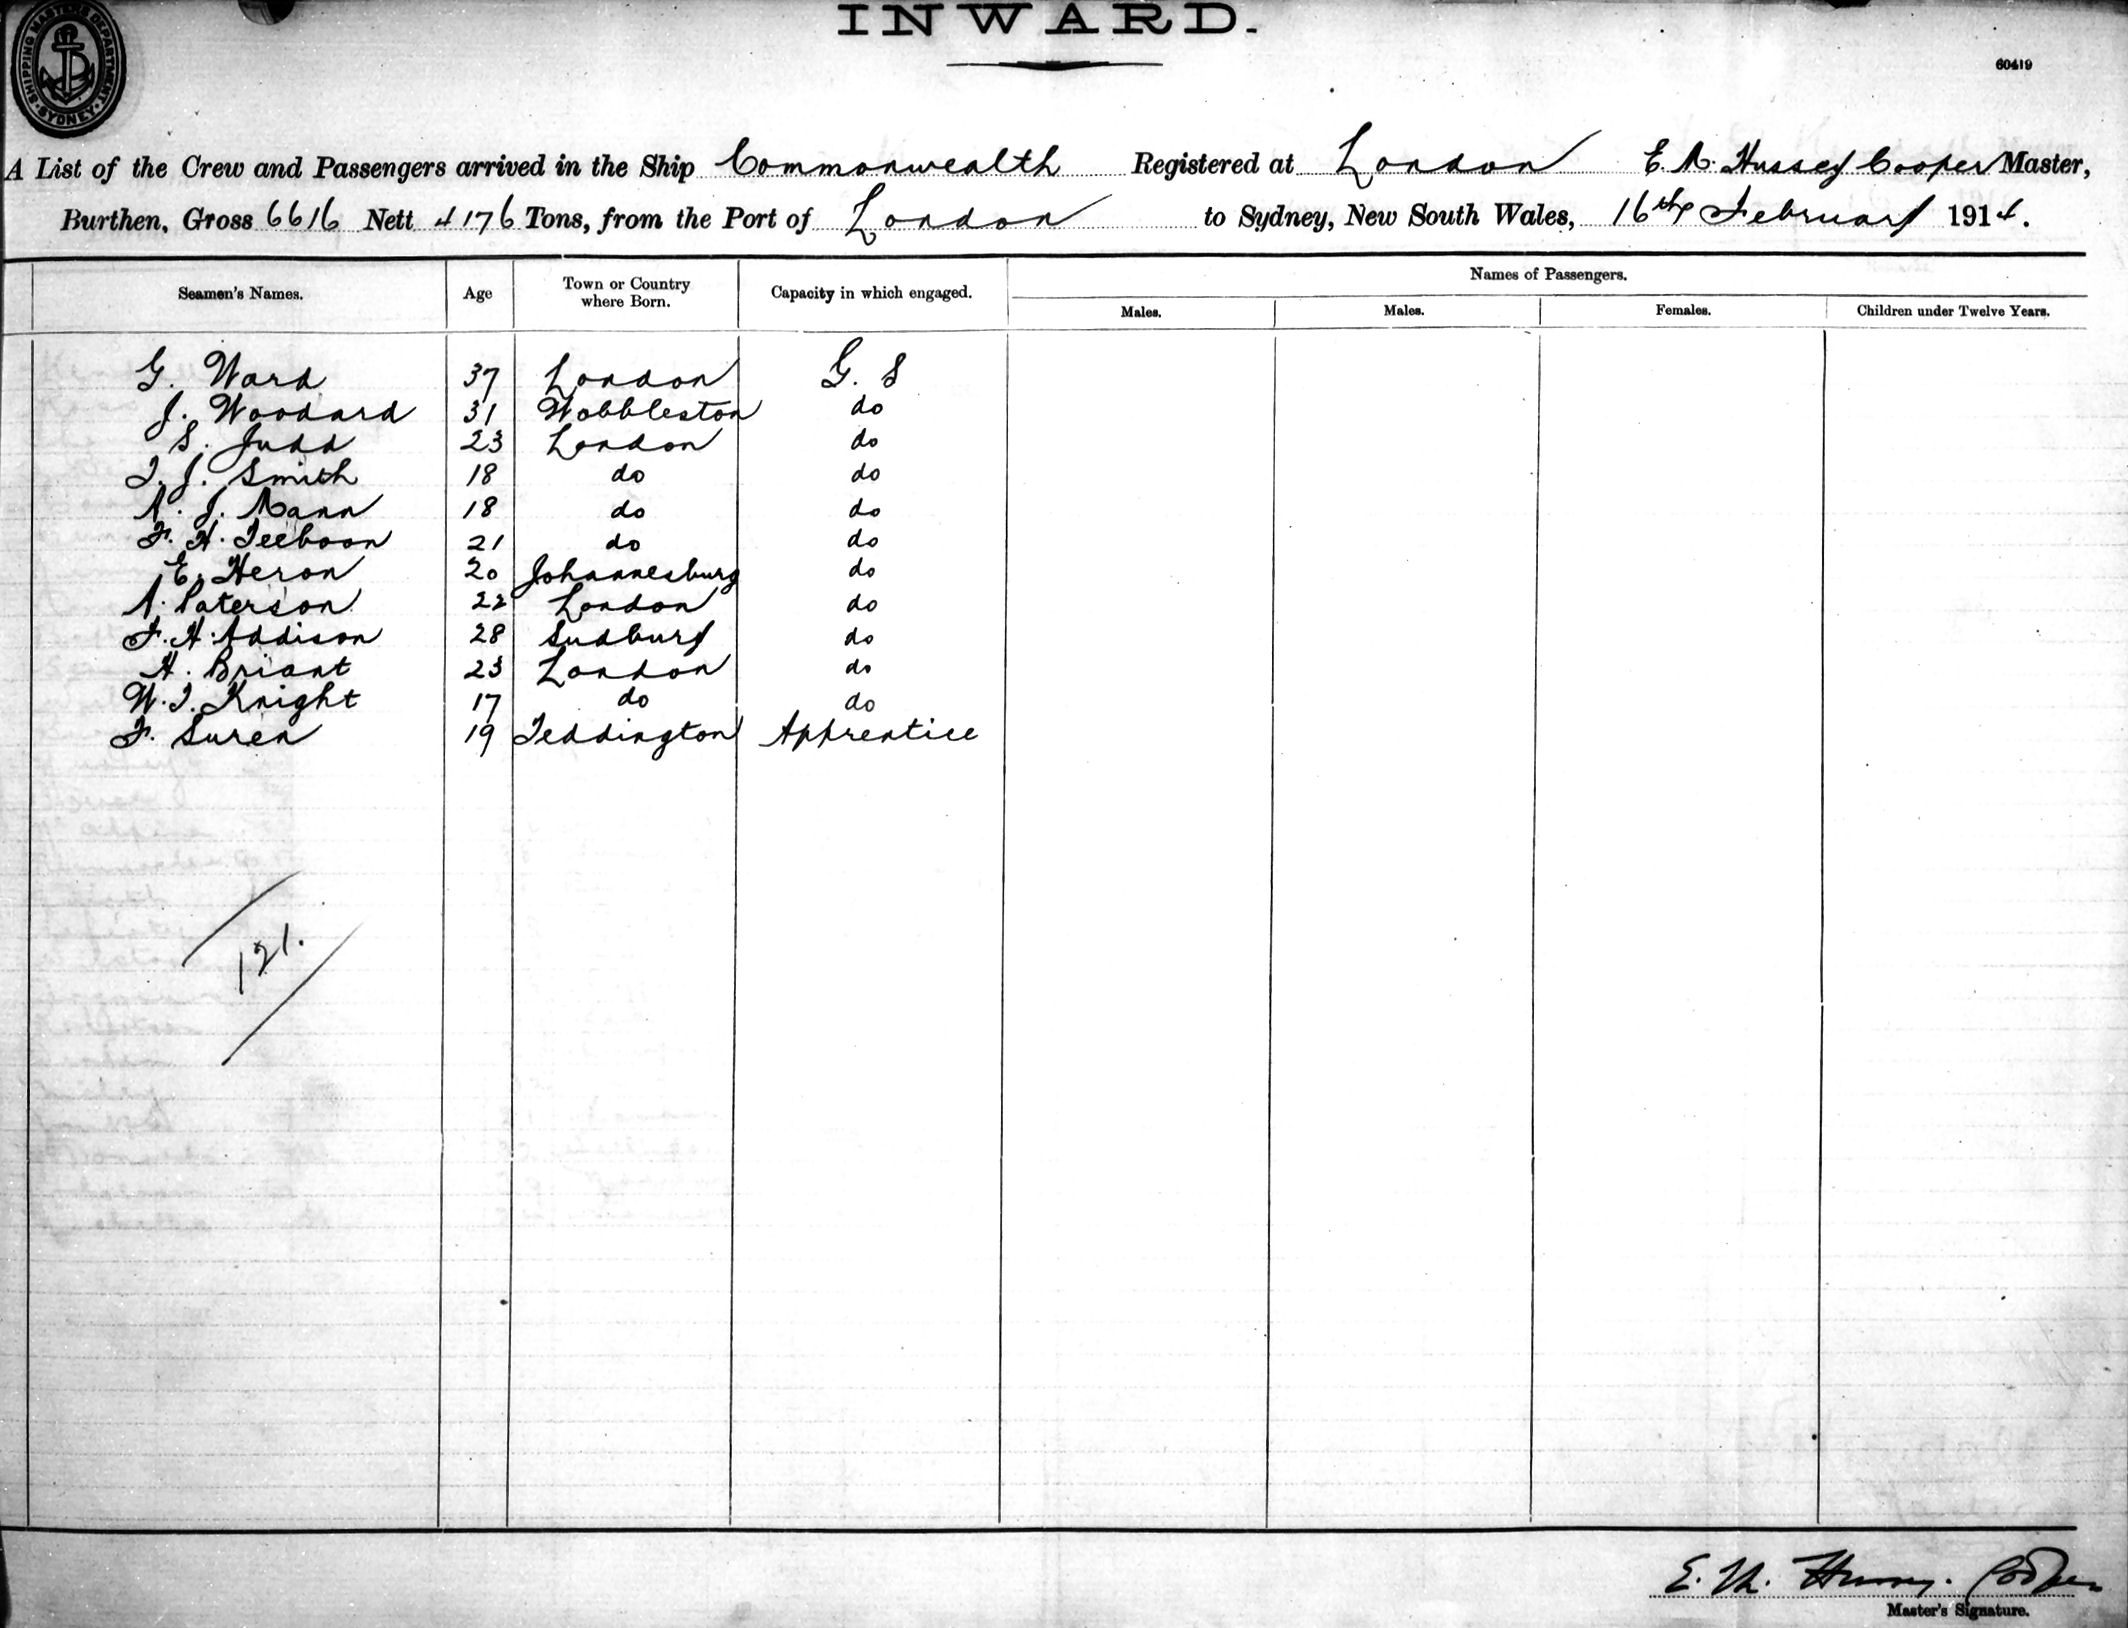 INWARD.
SHIPPING MASTERS DEPARTMENT SYDNEY
60419
A List of the Crew and Passengers arrived in the Ship Commonwealth Registered at London E. A. Hussey Cooper Master,
Burthen, Gross 6616 Nett 4176 Tons, from the Port of London to Sydney, New South Wales, 16th February 1914.
Names of Passengers.
Seamen's Names. Age Town or Country where Born. Capacity in which engaged. Males. Males. Females. Children under Twelve Years.
G. Ward 37 London G. S
J. Woodard 31 Wobbleston do
S. Judd 23 London do
T. J. Smith 18 do do
A. J. Mann 18 do do
F. H. Teeboon 21 do do
E. Heron 20 Johannesburg do
A. Paterson 22 London do
F. H. Addison 28 Sudbury do
H. Briant 23 London do
W. T. Knight 17 do do
F. Suren 19 Teddington Apprentice
121.
E. Cooper
Master's Signature.